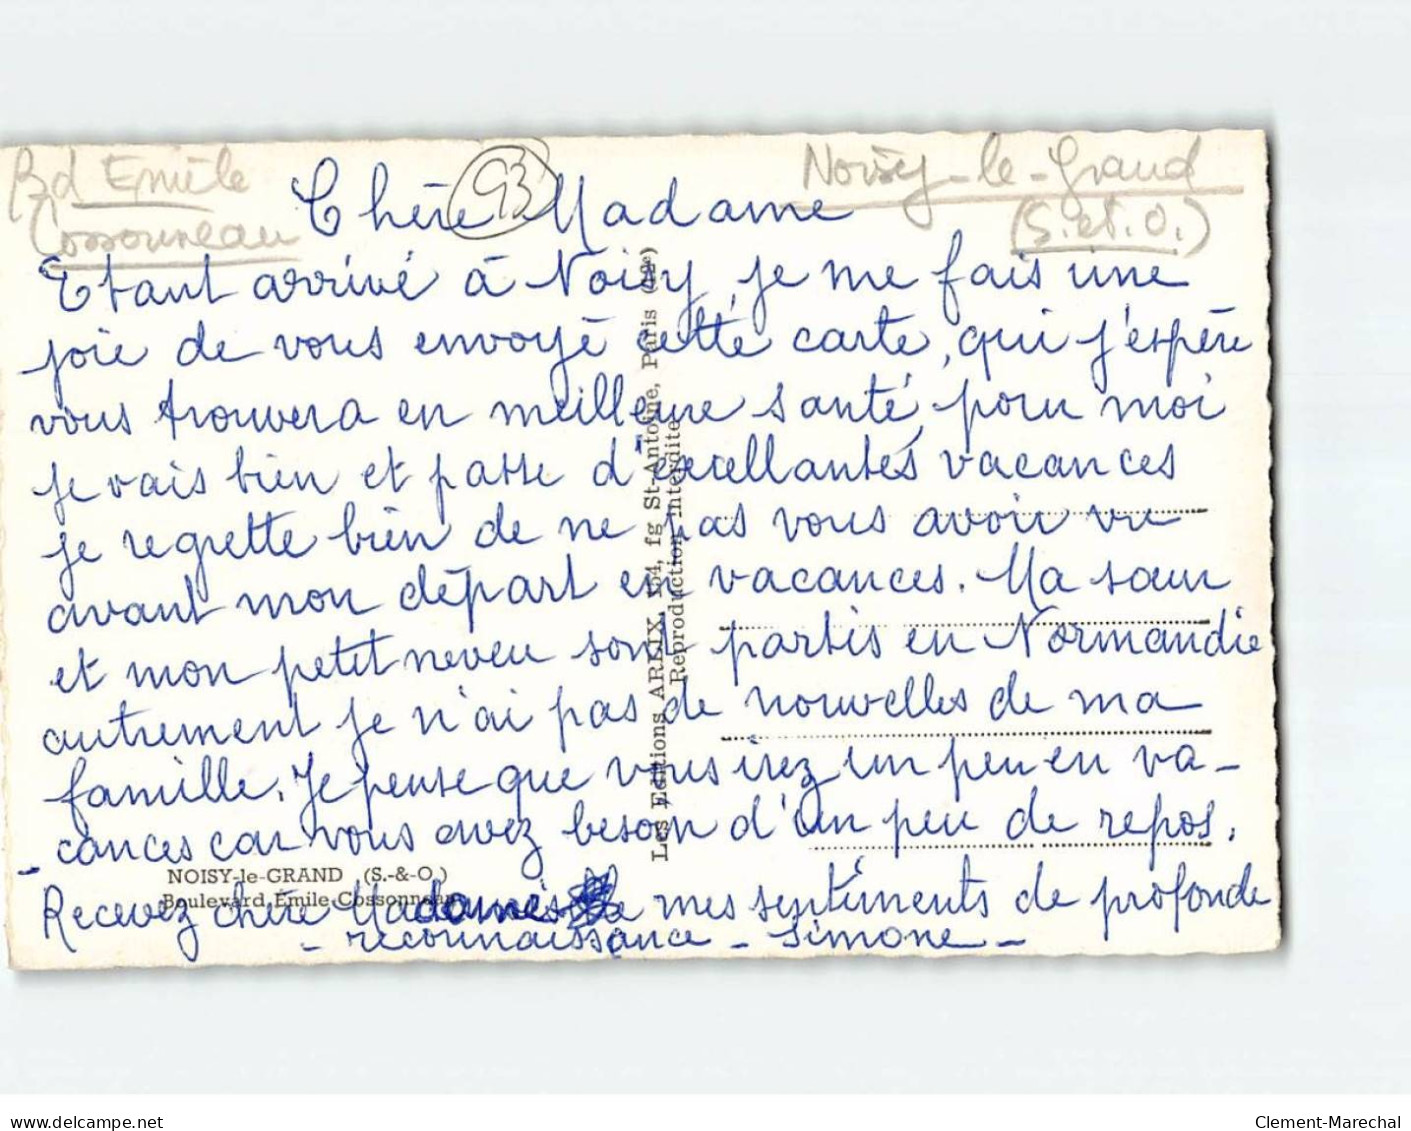 Bd Emile
Cossonneau
93
Noisy-le-Grand
(S. et. O.)
Chère Madame
Etant arrivé à Noisy, je me fais une
joie de vous envoyé cette carte, qui j'espère
vous trouvera en meilleure santé, pour moi
je vais bien et passe d'excellantes vacances
je regrette bien de ne pas vous avoir vu
avant mon départ en vacances. Ma sœur
et mon petit neveu sont partis en Normandie
autrement je n'ai pas de nouvelles de ma
famille. Je pense que vous irez un peu en va-
cances car vous avez besoin d'un peu de repos.
Recevez chère Madame mes sentiments de profonde
- reconnaissance - Simone -
NOISY-le-GRAND (S.-&-O.)
Boulevard Émile Cossonneau
Les Editions ARLIX, 154, fg St-Antoine, Paris (12e)
Reproduction interdite
Clement-Marechal
www.delcampe.net